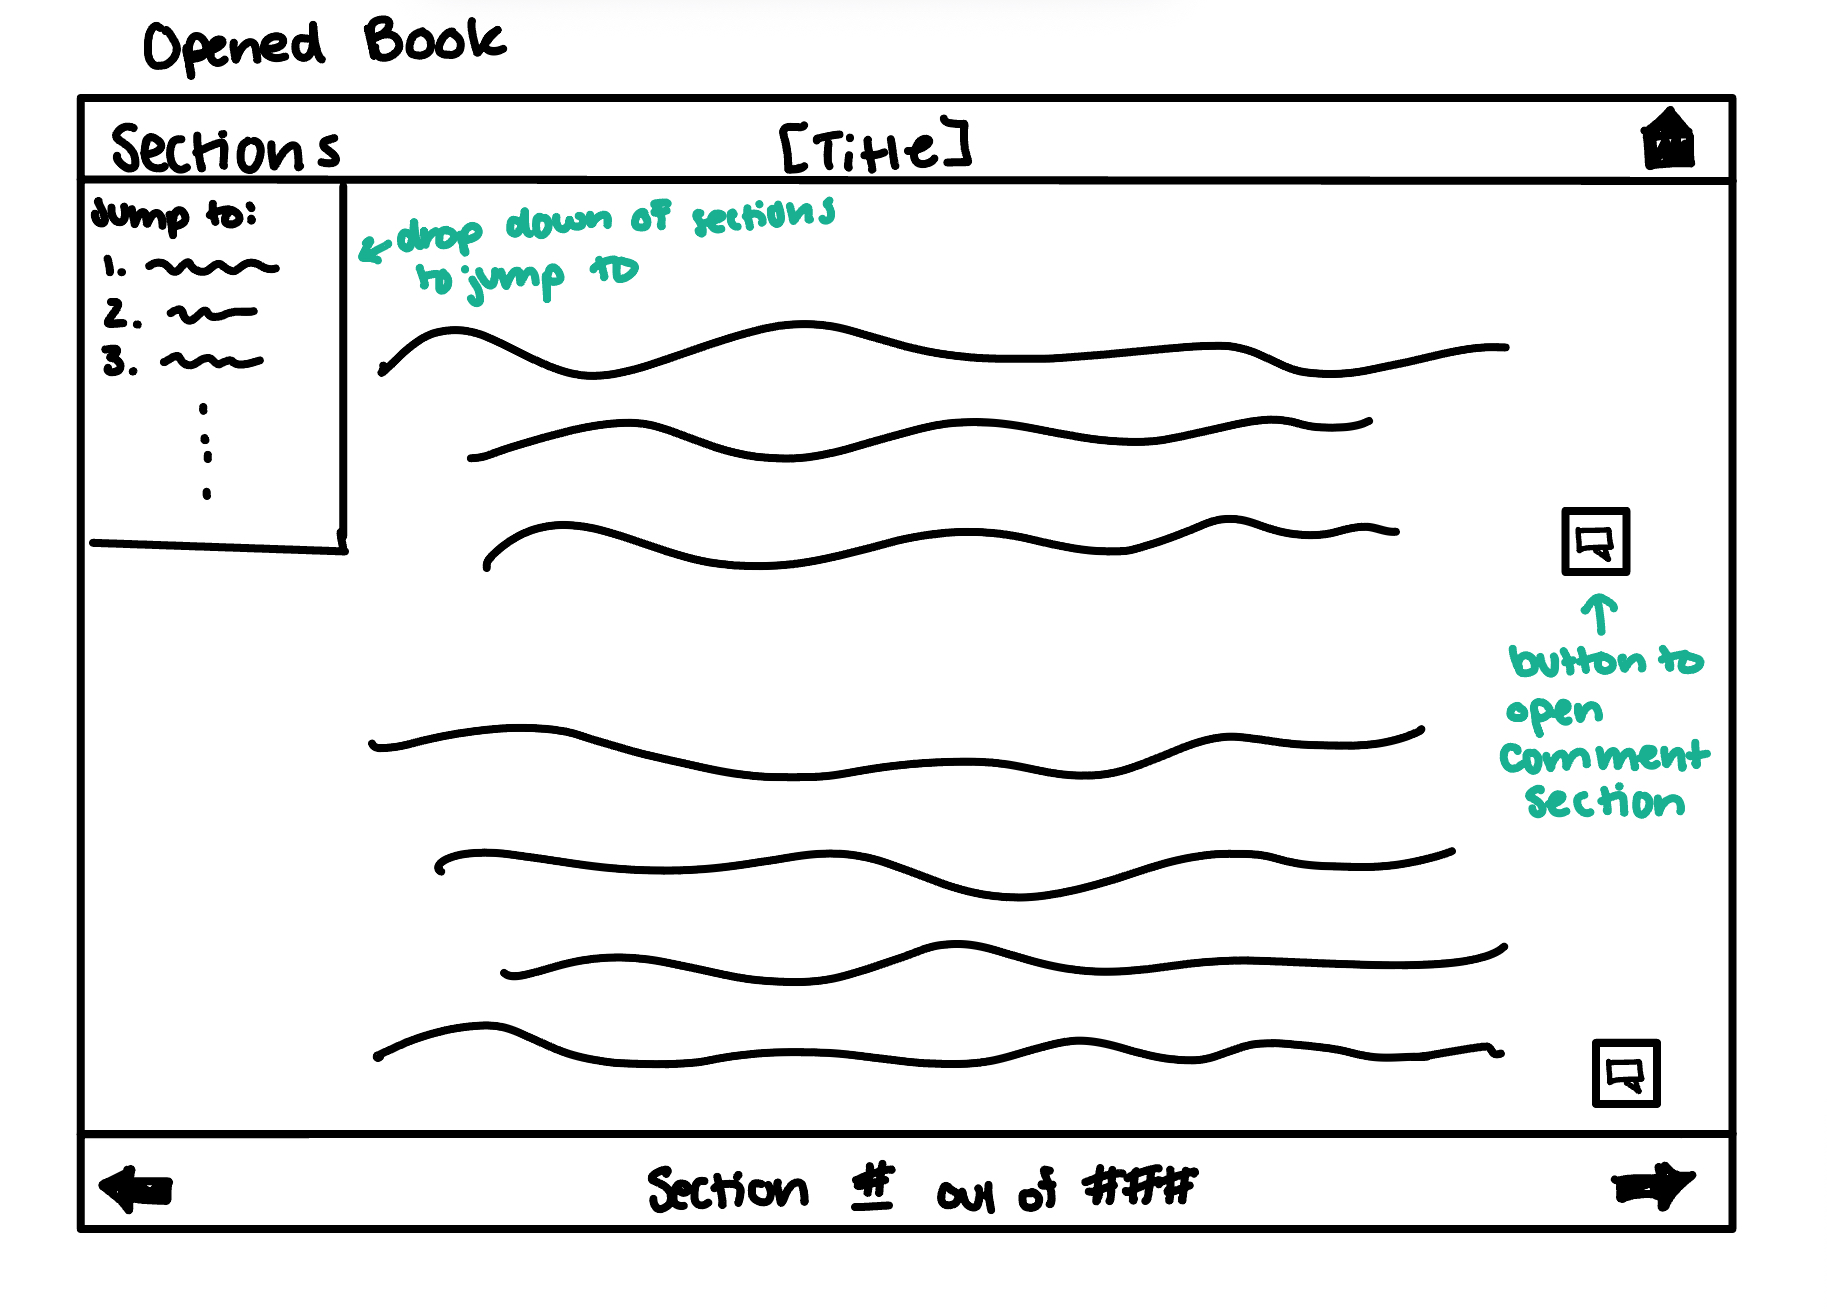 Opened Book
Sections
[Title]
Jump to:
1.
2.
3.
← drop down of sections
to jump to
button to
open
comment
section
Section # out of ###